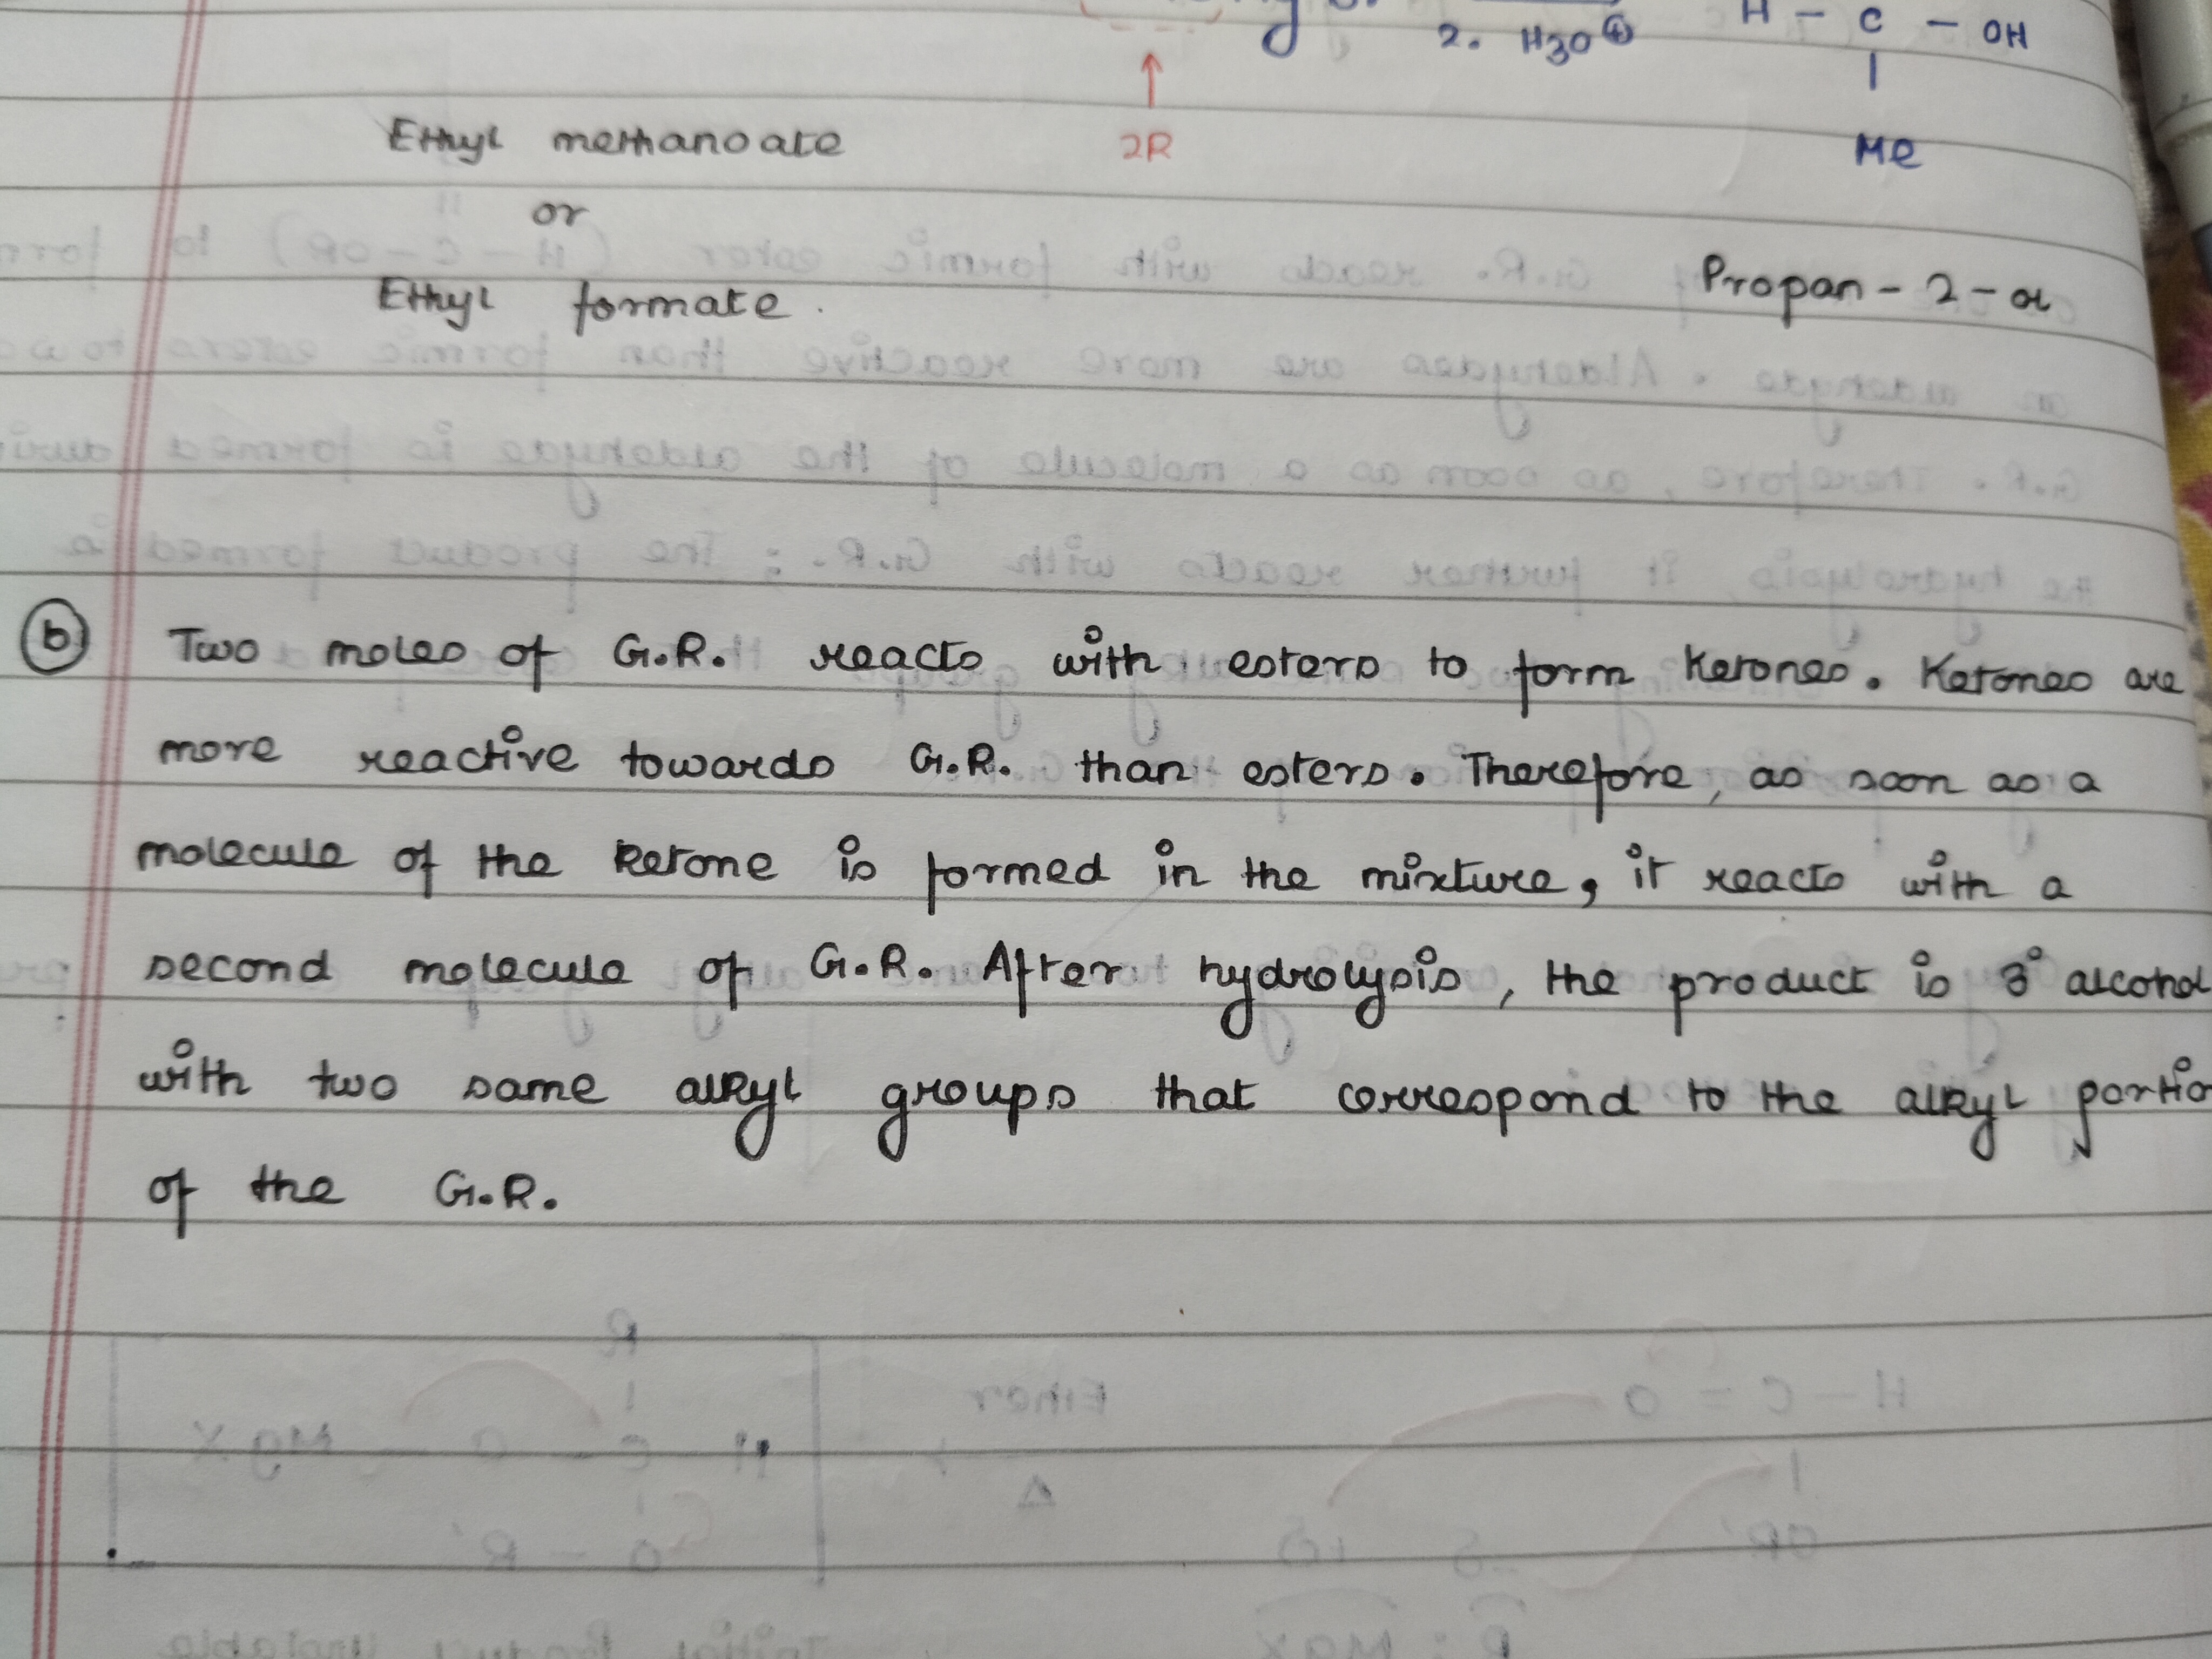 2. H3O⊕
H – C – OH
|
Me
↑
2R
Ethyl methanoate
or
Ethyl formate.
Propan - 2 - ol
(b) Two moles of G.R. reacts with esters to form ketones. Ketones are
more reactive towards G.R. than esters. Therefore, as soon as a
molecule of the ketone is formed in the mixture, it reacts with a
second molecule of G.R. After hydrolysis, the product is 3° alcohol
with two same alkyl groups that correspond to the alkyl portio
of the G.R.